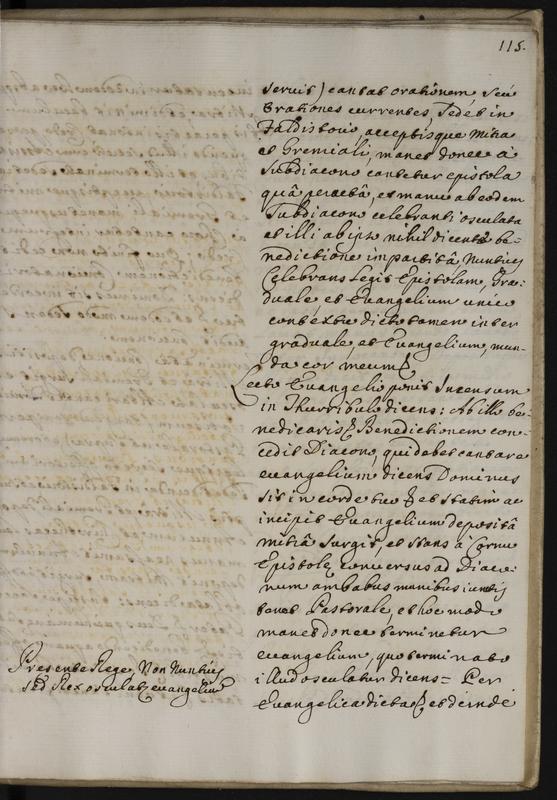 115.
servit) cantat orationem seú
Orationes currentes, Sedet in
Faldistorio, acceptisque Mitra
et Gremiali, manet donec à
Subdiacono cantetur epistola
quâ peractâ, et manu ab eodem
Subdiacono celebranti osculata
et illi ab ipso nihil dicente be-
nedictione impartitâ Nuntius
Celebrans legit Epistolam, Gra-
duale, et Evangelium unico
contextu dicto tamen inter
graduale, et Evangelium, mun-
da cor meum &
Lecto Evangelio ponit Incensum
in Thurribulo dicens: Ab illo be-
nedicaris & Benedictionem con-
cedit Diacono, qui debet cantare
evangelium dicens Dominus
sit in corde tuo & et statim ac
incipit Evangelium depositâ
mitrâ surgit, et stans à Cornu
Epistolę conversus ad Diaco-
num ambabus manibus iunctis
tenet Pastorale, et hoc modo
manet donec terminetur
evangelium, quo terminato
illud osculatur dicens= Per
Evangelica dicta & et deinde
Presente Rege Non Nuntius
sed Rex osculatur evangelium